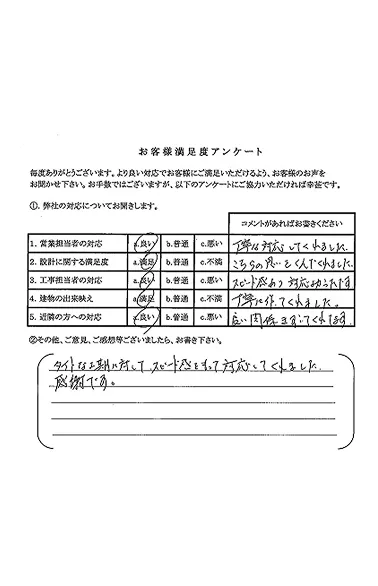 お客様満足度アンケート
毎度ありがとうございます。より良い対応でお客様にご満足いただけるよう、お客様のお声を
お聞かせ下さい。お手数ではございますが、以下のアンケートにご協力いただければ幸甚です。
①. 弊社の対応についてお聞きします。
コメントがあればお書きください
1. 営業担当者の対応 a.良い b.普通 c.悪い 丁寧な対応してくれました。
2. 設計に関する満足度 a.満足 b.普通 c.不満 こちらの思いをくんでくれました。
3. 工事担当者の対応 a.良い b.普通 c.悪い スピード感あり対応
4. 建物の出来映え a.満足 b.普通 c.不満 丁寧に作ってくれました。
5. 近隣の方への対応 a.良い b.普通 c.悪い 良い関係
②その他、ご意見、ご感想等ございましたら、お書き下さい。
タイトな工期に対して、スピード感をもって対応してくれました。
感謝です。